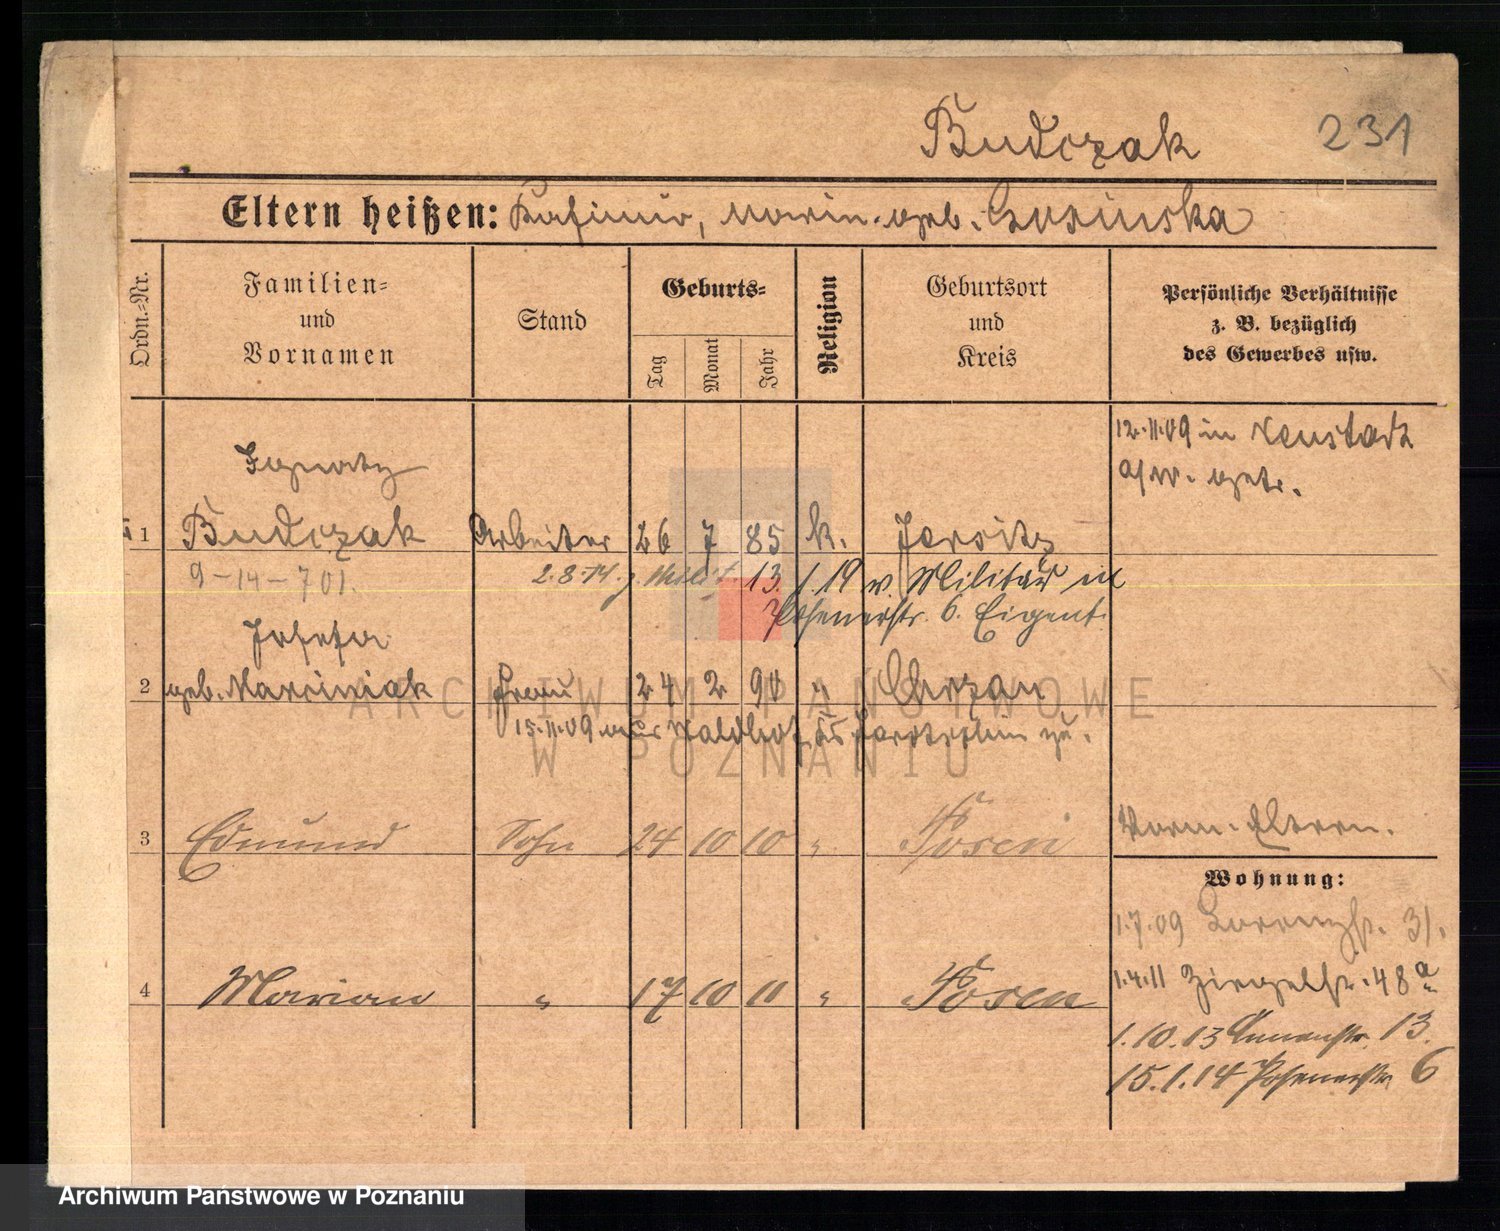 Budczak 231
Eltern heißen: Kasimir, Maria geb. Gusinska
Ordn.-Nr.
Familien-
und
Vornamen
Stand
Geburts-
Tag
Monat
Jahr
Religion
Geburtsort
und
Kreis
Persönliche Verhältnisse
z. B. bezüglich
des Gewerbes usw.
12.11.09 in Neustadt
a/W. getr.
Ignatz
1 Budczak Arbeiter 26 7 85 k. Jersitz
9-14-701.
2.8.14. z. Milit 13. 1. 19 v. Militär in
Posenerstr. 6. Eigent.
Josefa
2 geb. Marciniak Frau 24 2 90 " Chrzan
15.11.09 aus Waldhof, Kr. Jarotschin zu.
3 Edmund Sohn 24 10 10 " Posen
Vorm. Eltern.
Wohnung:
1.7.09 31.
4 Marian " 17 10 11 " Posen
1.4.11 Ziegelstr. 48a
1.10.13 13.
15.1.14 Posenerstr. 6
ARCHIWUM PAŃSTWOWE
W POZNANIU
Archiwum Państwowe w Poznaniu